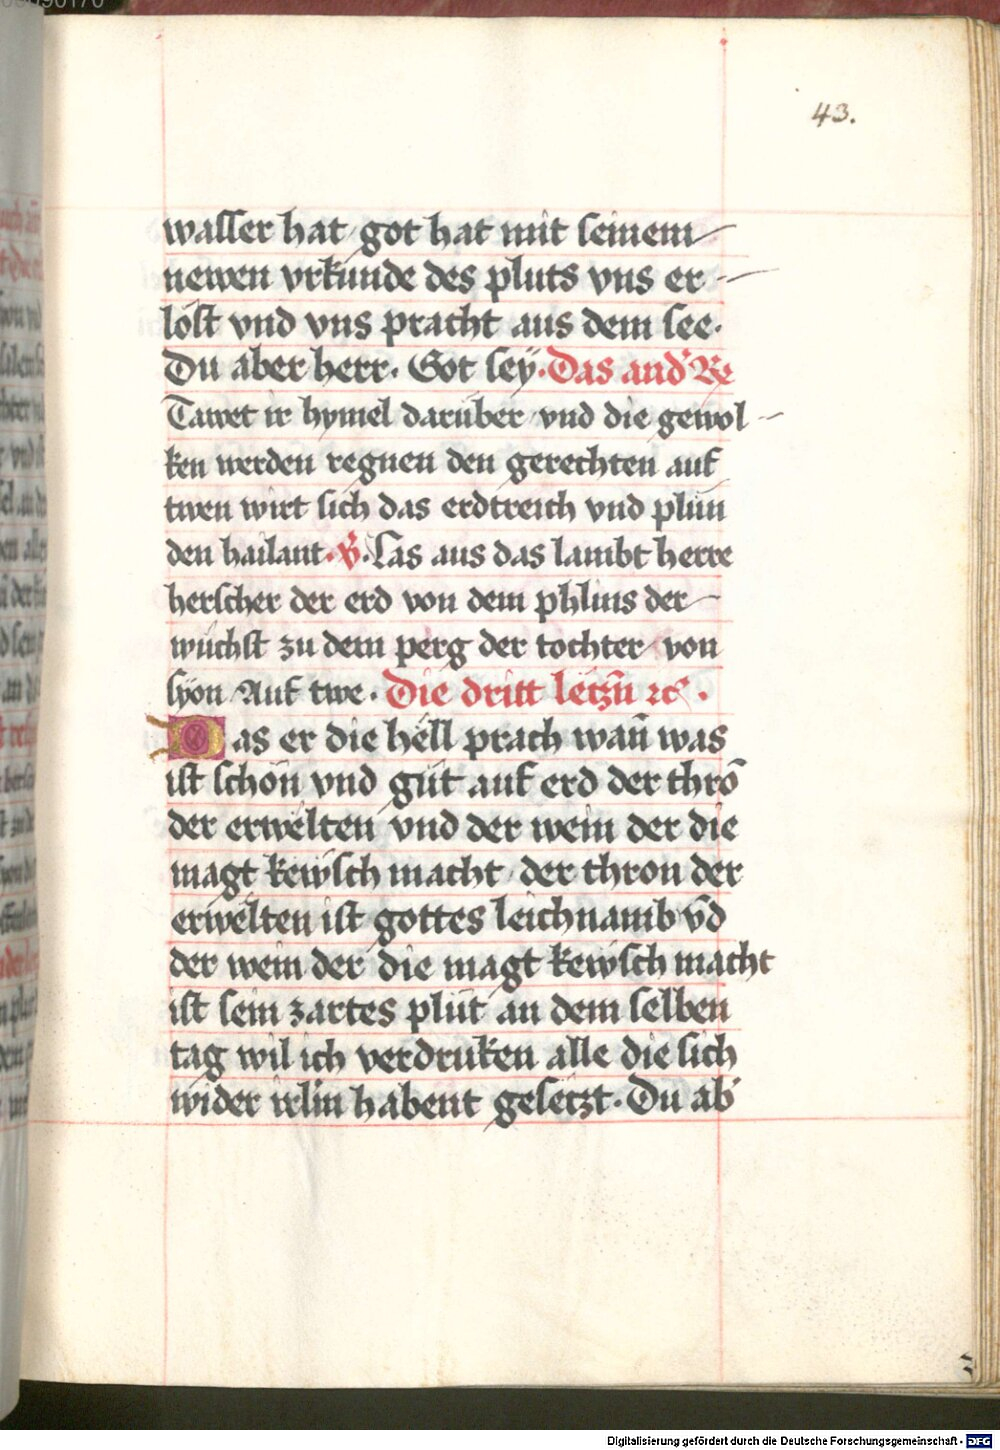 43.
wasser hat got hat mit seinem
newen vrkunde des pluts vns er
löst vnd vns pracht aus dem see.
Du aber herr. Got seÿ. Das and' Re
Tawet ir hymel darüber vnd die gewol
ken werden regnen den gerechten auf
twen wirt sich das erdtreich vnd plün
den hailant. V. Las aus das lambt herre
herscher der erd von dem phlins der
wüchst zu dem perg der tochter von
syon Auf twe. Die dritt letzn̄ ꝛc.
Das er die hell prach wan̄ was
ist schön vnd güt auf erd der thrō
der erwelten vnd der wein der die
magt kewsch macht der thron der
erwelten ist gottes leichnamb vn̄d
der wein der die magt kewsch macht
ist sein zartes plüt an dem selben
tag wil ich verdruken alle die sich
wider irlm habent gesetzt. Du ab'
Digitalisierung gefördert durch die Deutsche Forschungsgemeinschaft - DFG